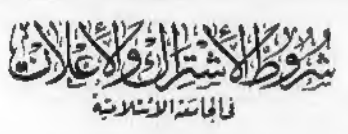 شُرُوطُ الْاِشْتِرَاكِ وَالْاِعْلَانِ
في الجامعة الإسلامية